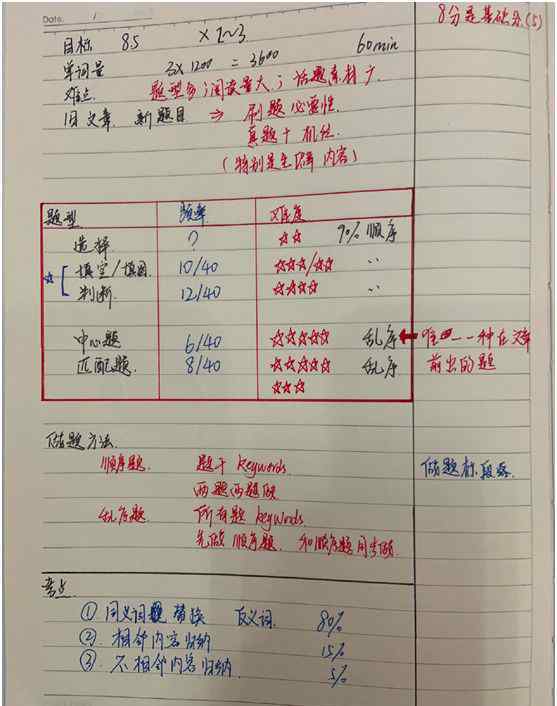 Date.
8分是基础分(5)
目标 8.5 × 1~3
单词量 3×1200 = 3600 60min
难点 题型多;阅读量大;话题素材广
旧文章 新题目 ⇒ 刷题必要性
真题+机经
(特别是生 内容)
题型 频率 难度
选择 ? ☆☆ 90% 顺序
☆ 填空/填图 10/40 ☆☆☆/☆☆ ,,
判断 12/40 ☆☆☆☆ ,,
中心题 6/40 ☆☆☆☆☆ 乱序 ← 唯一一种在文章
匹配题 8/40 ☆☆☆☆☆ 乱序 前出的题
☆☆☆
做题方法
顺序题 题干 keywords 做题标段落
两题两题做
乱序题 所有题 keywords
先做顺序题 和顺序题同步做
考点
① 同义词 替换 反义词 80%
② 相邻内容归纳 15%
③ 不相邻内容归纳 5%